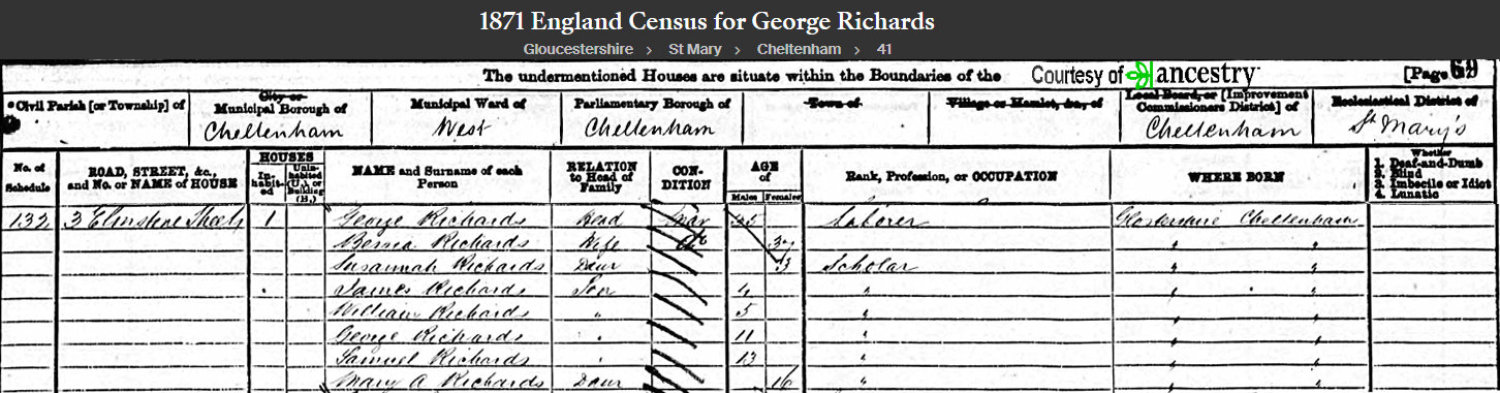 1871 England Census for George Richards
Gloucestershire > St Mary > Cheltenham > 41
The undermentioned Houses are situate within the Boundaries of the Courtesy of ancestry [Page 69
Civil Parish [or Township] of City or Municipal Borough of Municipal Ward of Parliamentary Borough of Town of Village or Hamlet, &c., of Local Board, or [Improvement Commissioners District] of Ecclesiastical District of
Cheltenham West Cheltenham Cheltenham St Mary's
No. of Schedule ROAD, STREET, &c., and No. or NAME of HOUSE HOUSES Inhabited Uninhabited (U.), or Building (B.) NAME and Surname of each Person RELATION to Head of Family CONDITION AGE of Males Females Rank, Profession, or OCCUPATION WHERE BORN Whether 1. Deaf-and-Dumb 2. Blind 3. Imbecile or Idiot 4. Lunatic
132 3 1 George Richards Head Mar Laborer Cheltenham
Richards Wife " "
Susannah Richards Daur 3 Scholar " "
James Richards Son 4 " " "
William Richards " 5 " " "
George Richards " 11 " " "
Samuel Richards " 13 " " "
Mary A Richards Daur 16 " " "